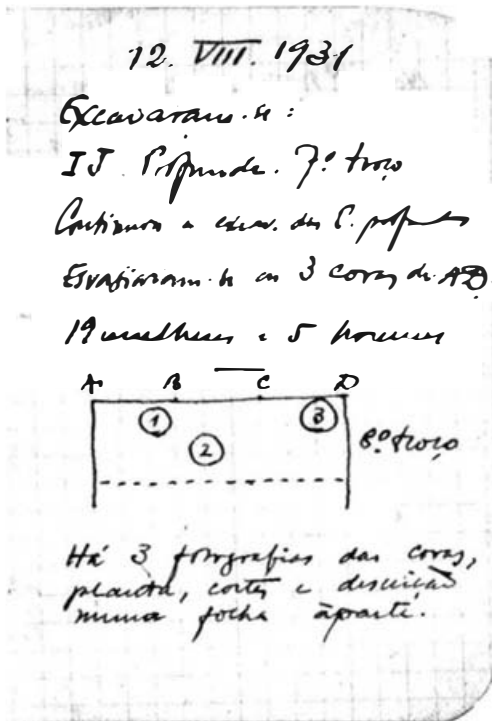 12. VIII. 1931
Excavaram-se:
IJ Profunda. 7º troço
Continuou a excav. das C. profundas
Esvasiaram-se as 3 covas de AD.
19 mulheres e 5 homens
A B C D
1 3
2
8º troço
Há 3 fotografias das covas,
planta, cortes e descrição
numa folha àparte.